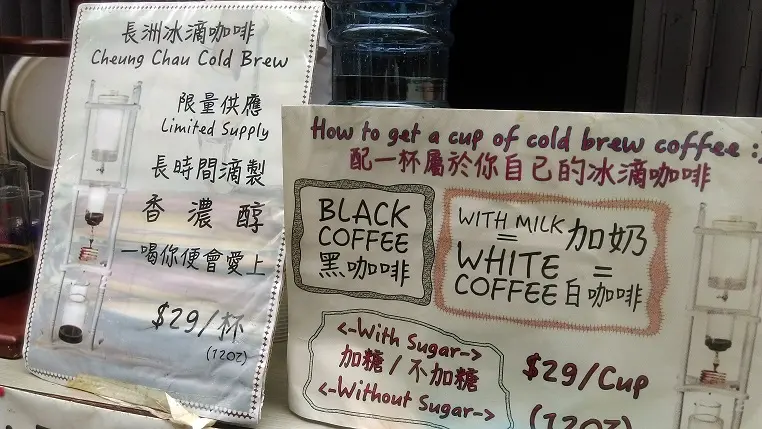 長洲冰滴咖啡
Cheung Chau Cold Brew
限量供應
Limited Supply
長時間滴製
香濃醇
一喝你便會愛上
$29/杯
(12oz)
How to get a cup of cold brew coffee :)
配一杯屬於你自己的冰滴咖啡
BLACK
COFFEE
黑咖啡
WITH MILK 加奶
= =
WHITE
COFFEE 白咖啡
<-With Sugar->
加糖/不加糖
<-Without Sugar->
$29/Cup
(12oz)